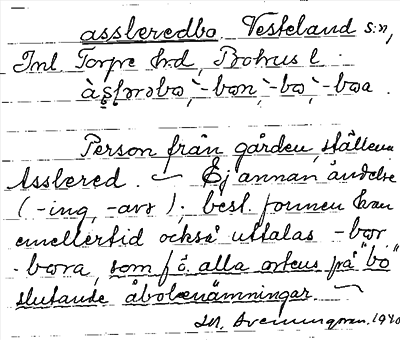 assleredbo. Vesteland s:n,
Inl Torpe h:d, Bohus l.
-bon, -bo, -boa.
Person från gården, stället
Asslered. — Ej annan ändelse
(-ing, -are); best. formen kan
emellertid också uttalas -bor
-bora, som f. ö. alla ortens på "bo"
slutande åbobenämningar. —
1940